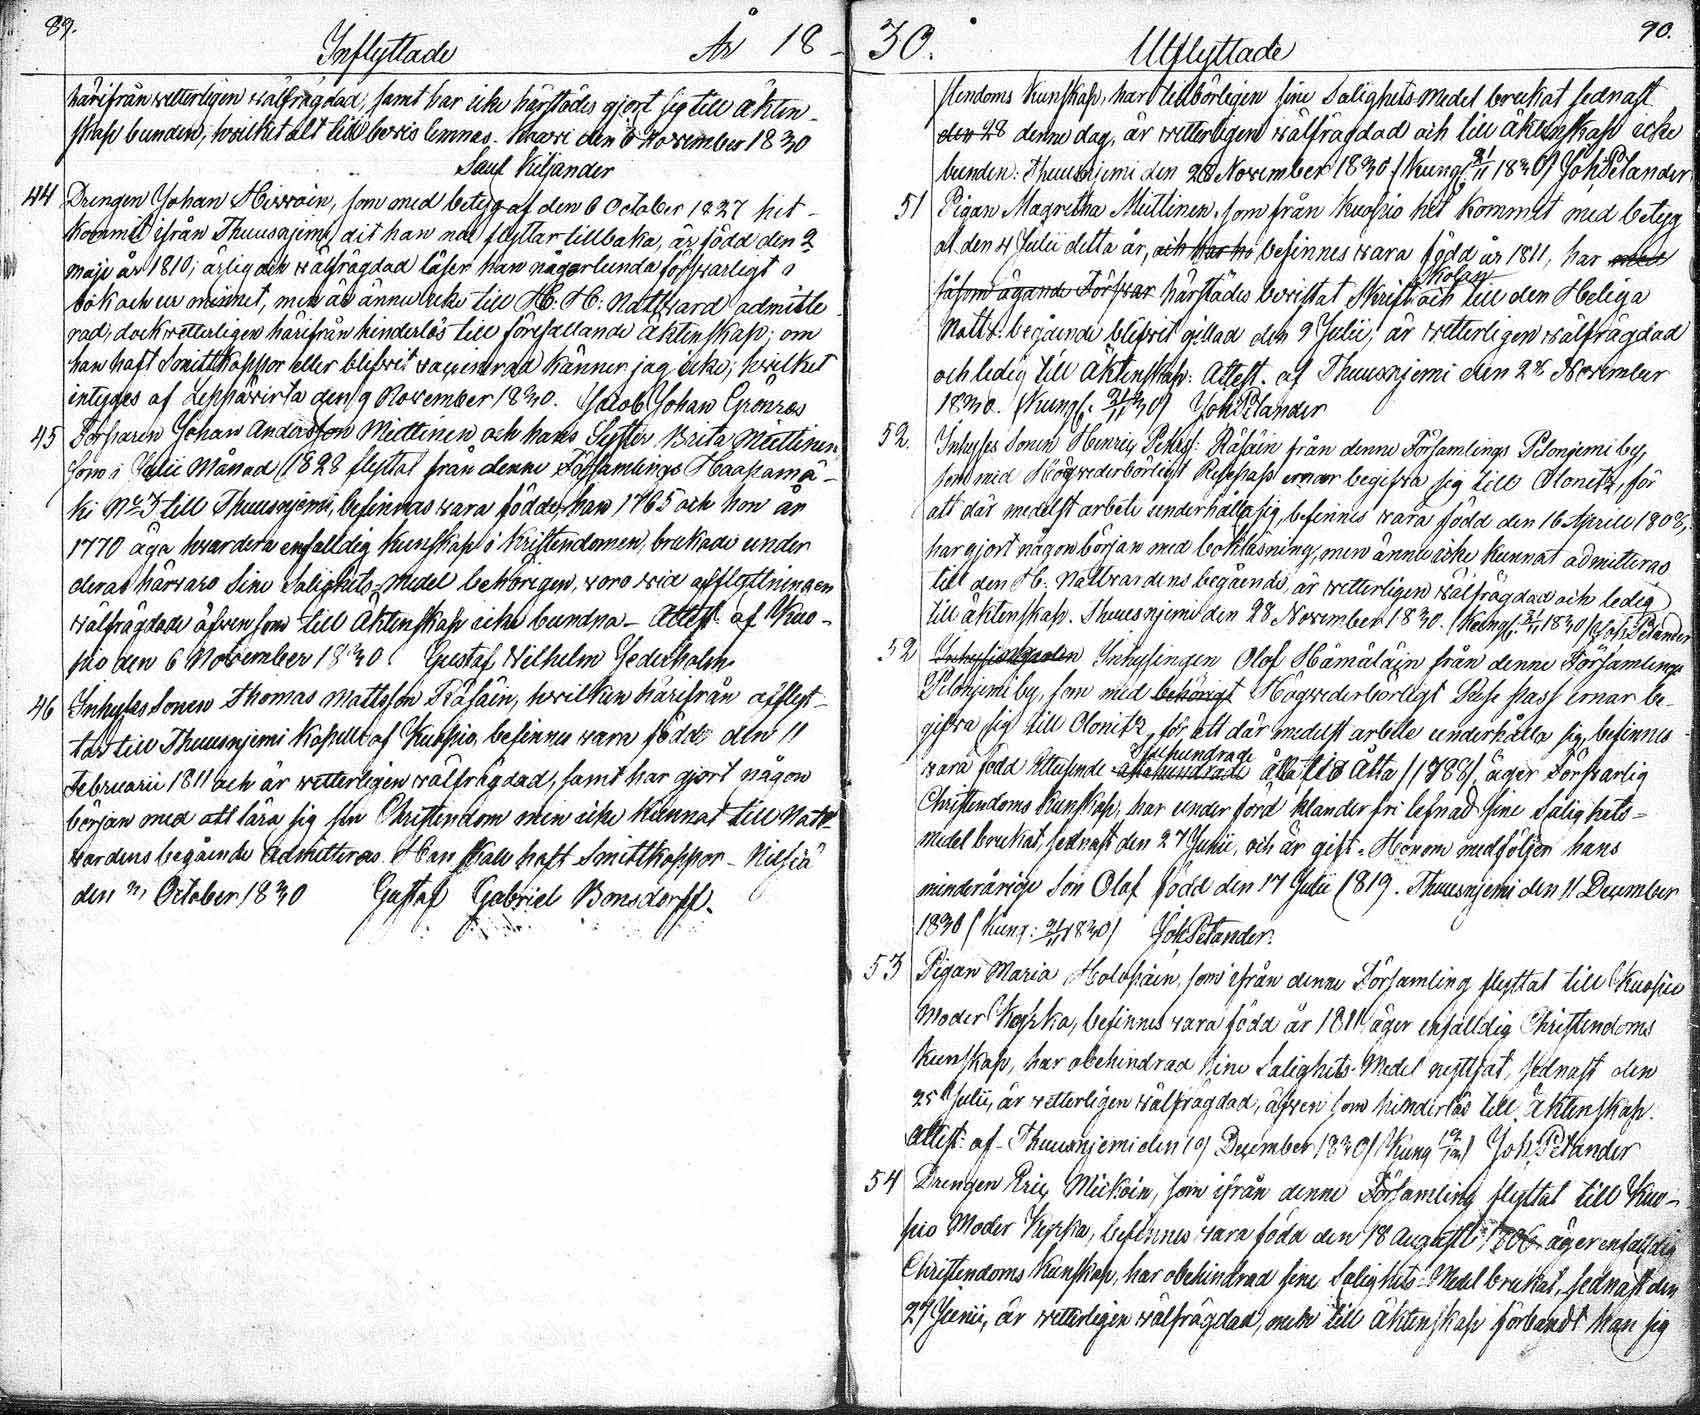 89.
Inflyttade År 18
härifrån vetterligen wälfrägdad, samt har icke härstädes gjort sig till äkten-
skap bunden, hwilket alt till bewis lemnas. den 6 November 1830
Saul Kiljander
44 Drengen Johan Hirwoin, som med betyg af den 6 October 1827 hit-
kommit ifrån Thuusnjemi, dit han nu flyttar tillbaka, är född den 2
maji år 1810; ärlig och wälfrägdad läser han någorlunda försvarligt i
bok och ur minnet, men är ännu icke till H. H. Nattward admitte
rad; dock wetterligen härifrån hinderlös till förefallande Äktenskap; om
han haft Smittkoppor eller blifvit vaccinerad känner jag icke; hwilket
intygas af Leppäwirta den 9 November 1830. Jacob Johan Grönroos
45 Torparen Johan Andersson Miettinen och hans Syster Brita Miettinen
som i Julii Månad 1828 flyttat från denne Församlings Haapamä-
ki No 3 till Thuusnjemi, befinnas vara födde, han 1765 och hon år
1770 äga hvardera enfaldig kunskap i Kristendomen, brukade under
deras härvaro Sine Salighets-medel behörigen, woro wid afflyttningen
wälfrägdade äfven som till Äktenskap icke bundna - Attest. af Kuo-
pio den 6 November 1830 Gustaf Wilhelm Zederholm
46 Inhyses Sonen Thomas Mattsson Räsäin, hwilken härifrån afflyt-
tar till Thuusnjemi Kapell af Kuopio, befinnes vara född den 11
Februarii 1811 och är wetterligen wälfrägdad, samt har gjort någon
början med att lära sig sin Christendom men icke kunnat till Natt-
vardens begående admitteras. Han skall haft Smittkoppor - Nilsiä
den October 1830 Gustaf Gabriel Bonsdorff.
30. Utflyttade 90.
stendoms kunskap, har tillbörligen sine Salighets Medel brukat sednast
den 28 denne dag, är vetterligen wälfrägdad och till äktenskap icke
bunden: Thuusnjemi den 28 November 1830 / Kung. 21/11 1830/ Joh: Petander
51 Pigan Magretha Miettinen, som från Kuopio hit kommit med betyg
af den 4 Julii detta år, och har ho befinnes wara född år 1811, har
såsom ägande Försvar härstädes bevistat Skriftskolan och till den Heliga
Nattv: begående blifvit gillad den 9 Julii, är wetterligen wälfrägdad
och ledig till Äktenskap: Attest. af Thuusnjemi den 28 November
1830. (Kung. 21/11 30) Joh: Petander
52. Inhyses Sonen Henric Räsäin från denne Församlings Pelonjemi by,
som med Högvederbörligt Resepass ernar begifva sig till Olonitz, för
att där medelst arbete underhålla sig, befinnes vara född den 16 Aprill 1808,
har gjort någon början med bokläsning, men ännu icke kunnat admitteras
till den H. Nattvardens begående, är wetterligen wälfrägdad och ledig
till äktenskap. Thuusnjemi den 28 November 1830. (Kung. 21/11 1830) Joh: Petander
52 Inhysingen Olof Hämäläin från denne Församlings
Pelonjemi by, som med behörigt Högvederbörligt Rese pass ernar be-
gifva sig till Olonitz för att där medelst arbete underhålla sig, befinnes
vara född Ettusende Sjuhundrade åttahundrade åtta tio Åtta /1788/, äger Försvarlig
Christendoms kunskap, har under förd klander fri lefnad sine Salighets-
medel brukat, sednast den 27 Junii, och är gift. Honom medföljer hans
minderårige Son Olof född den 17 Julii 1819. Thuusnjemi den 11 December
1830 / Kung: 21/11 1830/ Joh: Petander.
53 Pigan Maria Holopäin, som ifrån denne Församling flyttat till Kuopio
Moder Kyrka, befinnes vara född år 1811 äger enfaldig Christendoms
kunskap, har obehindrad sine Salighets-Medel nyttjat, sednast den
25 Julii, är wetterligen wälfrägdad, äfven som hinderlös till äktenskap.
Attest: af Thuusnjemi den 19 December 1830 / Kung / Joh: Petander
54 Drengen Eric Mickoin, som ifrån denne Församling flyttat till Kuo-
pio Moder Kyrka, befinnes wara född den 18 Augusti 1806, äger enfaldig
Christendoms kunskap, har obehindrad sine Salighets-Medel brukat, sednast den
27 Junii, är wetterligen wälfrägdad, men till äktenskap förbandt han sig